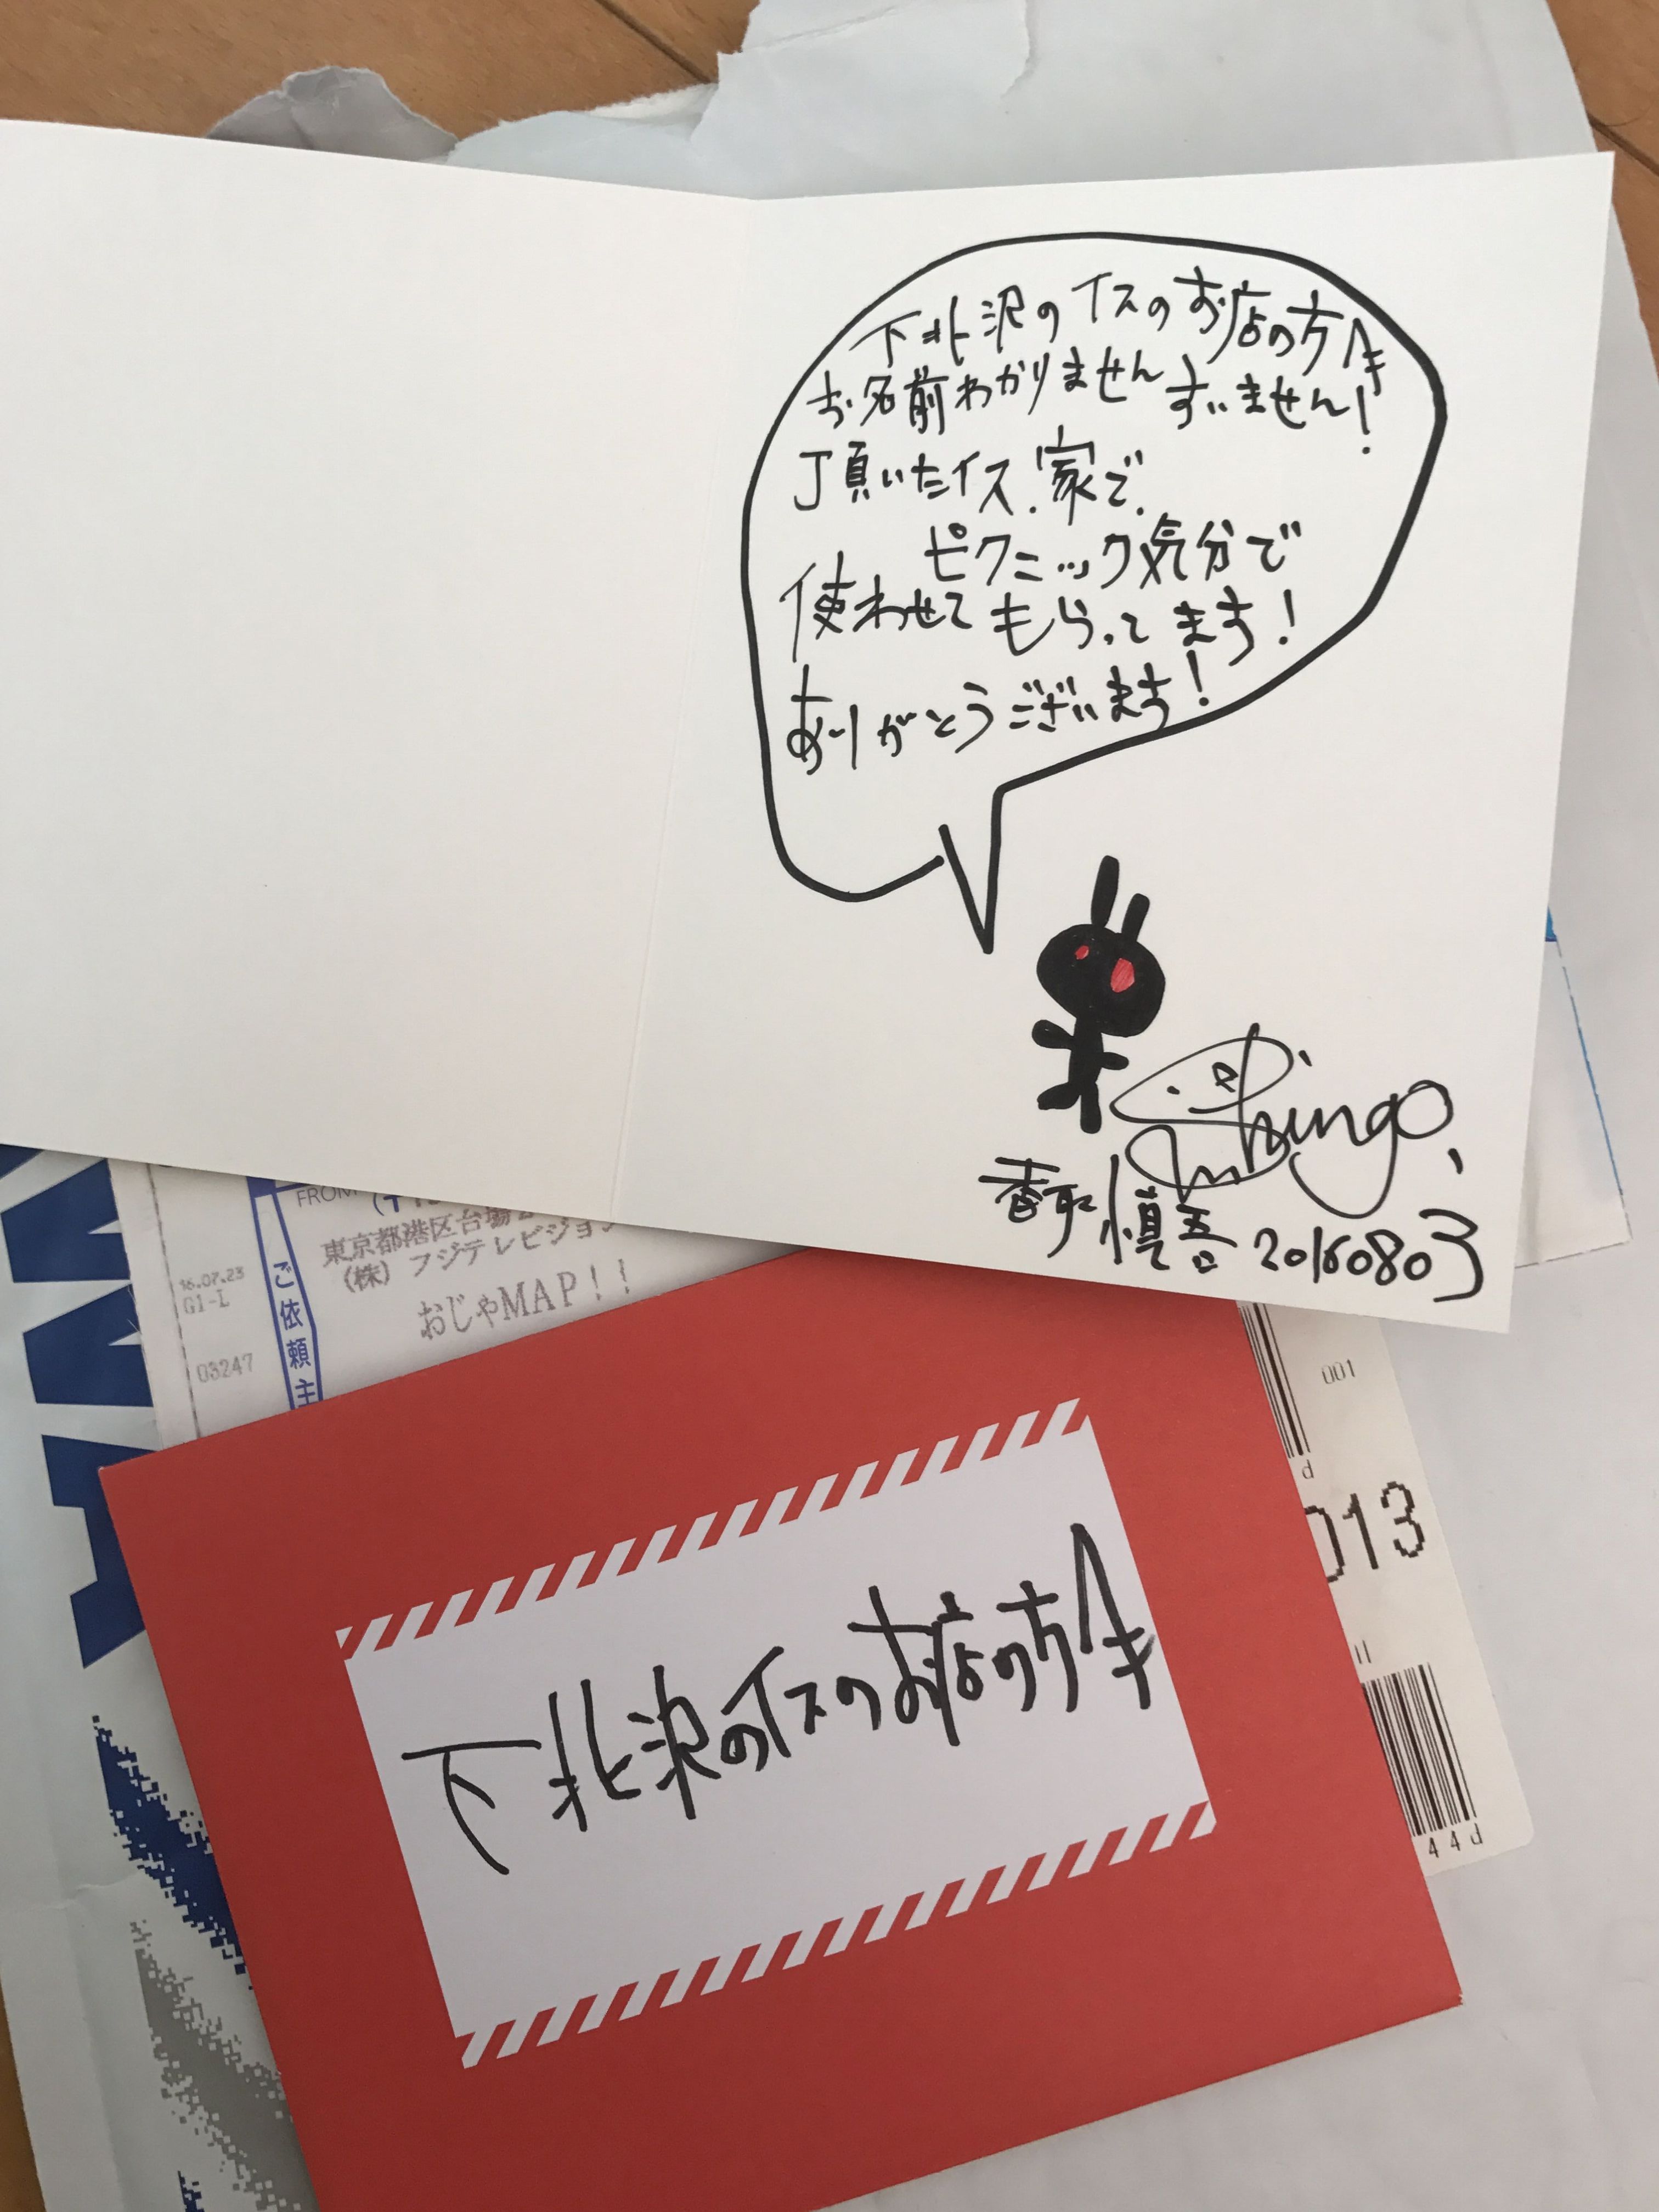 下北沢のイスのお店の方へ
お名前わかりません すいません!
頂いたイス.家で.
ピクニック気分で
使わせてもらってます!
ありがとうございます!
Shingo,
香取慎吾 20160803
FROM
東京都港区台場
(株) フジテレビジョン
おじゃMAP!!
16.07.23
G1-L
03247
ご依頼主
001
d
013
44d
下北沢のイスのお店の方へ